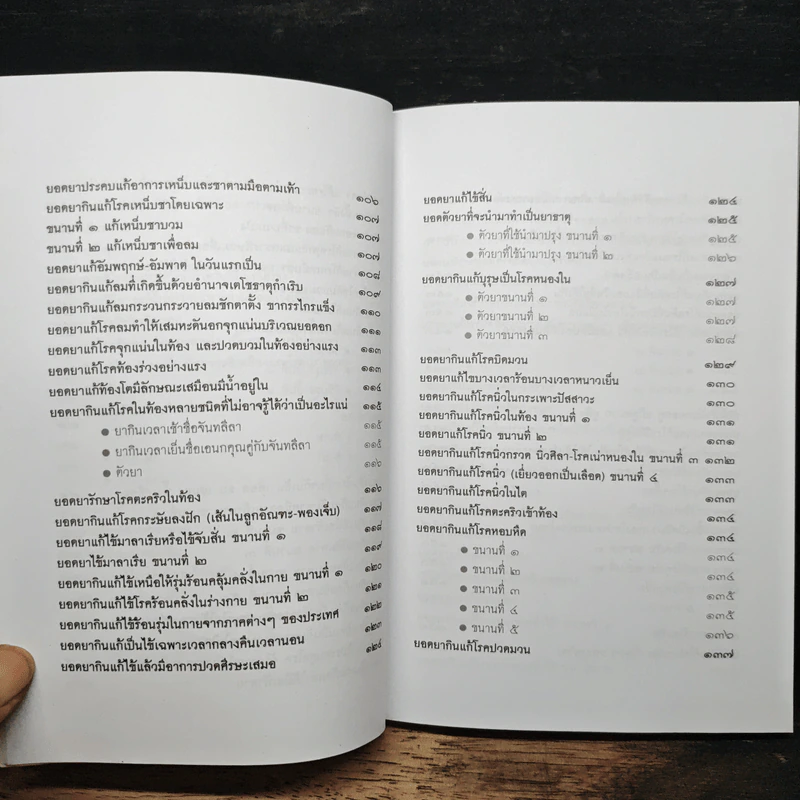 ยอดยาประคบแก้อาการเหน็บและชาตามมือตามเท้า ๑๐๖
ยอดยากินแก้โรคเหน็บชาโดยเฉพาะ ๑๐๗
ขนานที่ ๑ แก้เหน็บชาบวม ๑๐๗
ขนานที่ ๒ แก้เหน็บชาเพื่อลม ๑๐๗
ยอดยาแก้อัมพฤกษ์-อัมพาต ในวันแรกเป็น ๑๐๘
ยอดยากินแก้ลมที่เกิดขึ้นด้วยอำนาจเตโชธาตุกำเริบ ๑๐๙
ยอดยากินแก้ลมกระวนกระวายลมชักตาตั้ง ขากรรไกรแข็ง ๑๑๐
ยอดยาแก้โรคลมทำให้เสมหะตันอกจุกแน่นบริเวณยอดอก ๑๑๑
ยอดยาแก้โรคจุกแน่นในท้อง และปวดบวมในท้องอย่างแรง ๑๑๓
ยอดยาแก้โรคท้องร่วงอย่างแรง ๑๑๓
ยอดยาแก้ท้องโตมีลักษณะเสมือนมีน้ำอยู่ใน ๑๑๔
ยอดยากินแก้โรคในท้องหลายชนิดที่ไม่อาจรู้ได้ว่าเป็นอะไรแน่ ๑๑๕
● ยากินเวลาเช้าชื่อจันทลีลา ๑๑๕
● ยากินเวลาเย็นชื่อเอนกคุณคู่กับจันทลีลา ๑๑๕
● ตัวยา ๑๑๖
ยอดยารักษาโรคตะคริวในท้อง ๑๑๖
ยอดยากินแก้โรคกระษัยลงฝัก (เส้นในลูกอัณฑะ-พองเจ็บ) ๑๑๗
ยอดยาแก้ไข้มาลาเรียหรือไข้จับสั่น ขนานที่ ๑ ๑๑๘
ยอดยาไข้มาลาเรีย ขนานที่ ๒ ๑๑๙
ยอดยากินแก้ไข้เหนือให้รุ่มร้อนคลุ้มคลั่งในกาย ขนานที่ ๑ ๑๒๐
ยอดยากินแก้ไข้โรคร้อนคลั่งในร่างกาย ขนานที่ ๒ ๑๒๑
ยอดยากินแก้ไข้ร้อนรุ่มในกายจากภาคต่างๆ ของประเทศ ๑๒๒
ยอดยากินแก้เป็นไข้เฉพาะเวลากลางคืนเวลานอน ๑๒๓
ยอดยากินแก้ไข้แล้วมีอาการปวดศีรษะเสมอ ๑๒๔
ยอดยาแก้ไข้สั่น ๑๒๔
ยอดตัวยาที่จะนำมาทำเป็นยาธาตุ ๑๒๕
● ตัวยาที่ใช้นำมาปรุง ขนานที่ ๑ ๑๒๕
● ตัวยาที่ใช้นำมาปรุง ขนานที่ ๒ ๑๒๖
ยอดยากินแก้บุรุษเป็นโรคหนองใน ๑๒๗
● ตัวยาขนานที่ ๑ ๑๒๗
● ตัวยาขนานที่ ๒ ๑๒๗
● ตัวยาขนานที่ ๓ ๑๒๘
ยอดยากินแก้โรคบิดมวน ๑๒๙
ยอดยาแก้ไขบางเวลาร้อนบางเวลาหนาวเย็น ๑๓๐
ยอดยากินแก้โรคนิ่วในกระเพาะปัสสาวะ ๑๓๐
ยอดยากินแก้โรคนิ่วในท้อง ขนานที่ ๑ ๑๓๑
ยอดยาแก้โรคนิ่ว ขนานที่ ๒ ๑๓๑
ยอดยาแก้โรคนิ่วกรวด นิ่วศิลา-โรคเน่าหนองใน ขนานที่ ๓ ๑๓๒
ยอดยากินแก้โรคนิ่ว (เยี่ยวออกเป็นเลือด) ขนานที่ ๔ ๑๓๓
ยอดยากินแก้โรคนิ่วในไต ๑๓๓
ยอดยากินแก้โรคตะคริวเข้าท้อง ๑๓๔
ยอดยากินแก้โรคหอบหืด ๑๓๔
● ขนานที่ ๑ ๑๓๔
● ขนานที่ ๒ ๑๓๔
● ขนานที่ ๓ ๑๓๕
● ขนานที่ ๔ ๑๓๕
● ขนานที่ ๕ ๑๓๖
ยอดยากินแก้โรคปวดมวน ๑๓๗